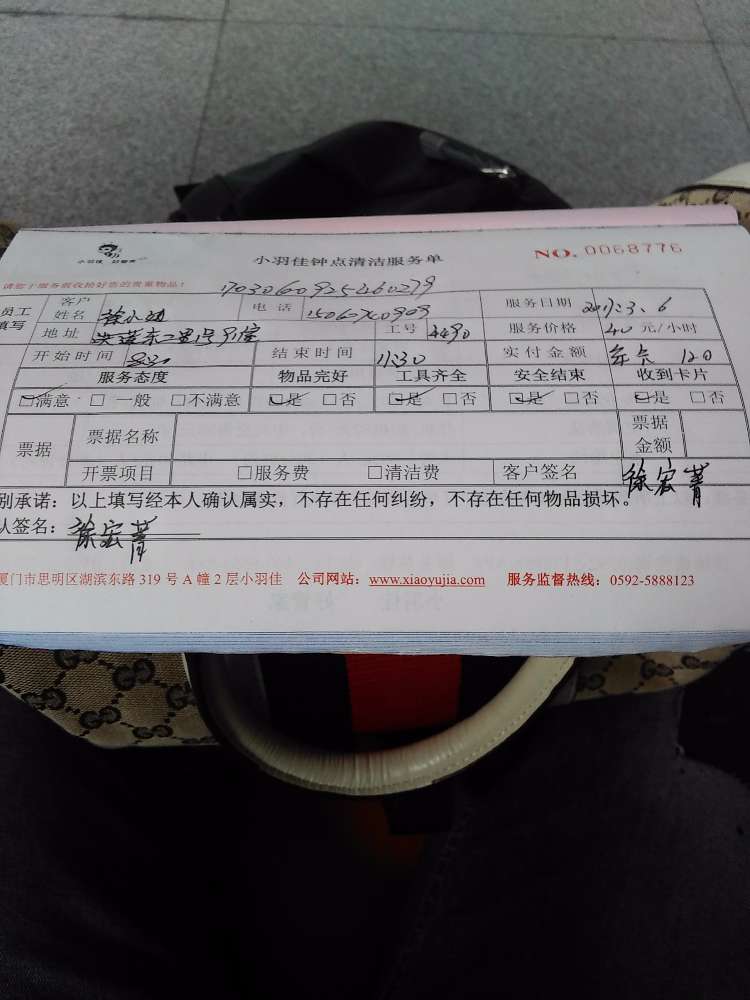 小羽佳 好管家
小羽佳钟点清洁服务单
NO. 0068776
请您于服务前收拾好您的贵重物品!
员工填写 客户姓名 徐小姐 电话 服务日期 2017.3.6
地址 工号 服务价格 40 元/小时
开始时间 结束时间 11:30 实付金额 年卡 120
服务态度 物品完好 工具齐全 安全结束 收到卡片
☑满意 □一般 □不满意 ☑是 □否 ☑是 □否 ☑是 □否 ☑是 □否
票据 票据名称 票据金额
开票项目 □服务费 □清洁费 客户签名 徐宏菁
别承诺:以上填写经本人确认属实,不存在任何纠纷,不存在任何物品损坏。
人签名:徐宏菁
厦门市思明区湖滨东路 319 号 A 幢 2 层小羽佳 公司网站:www.xiaoyujia.com 服务监督热线:0592-5888123